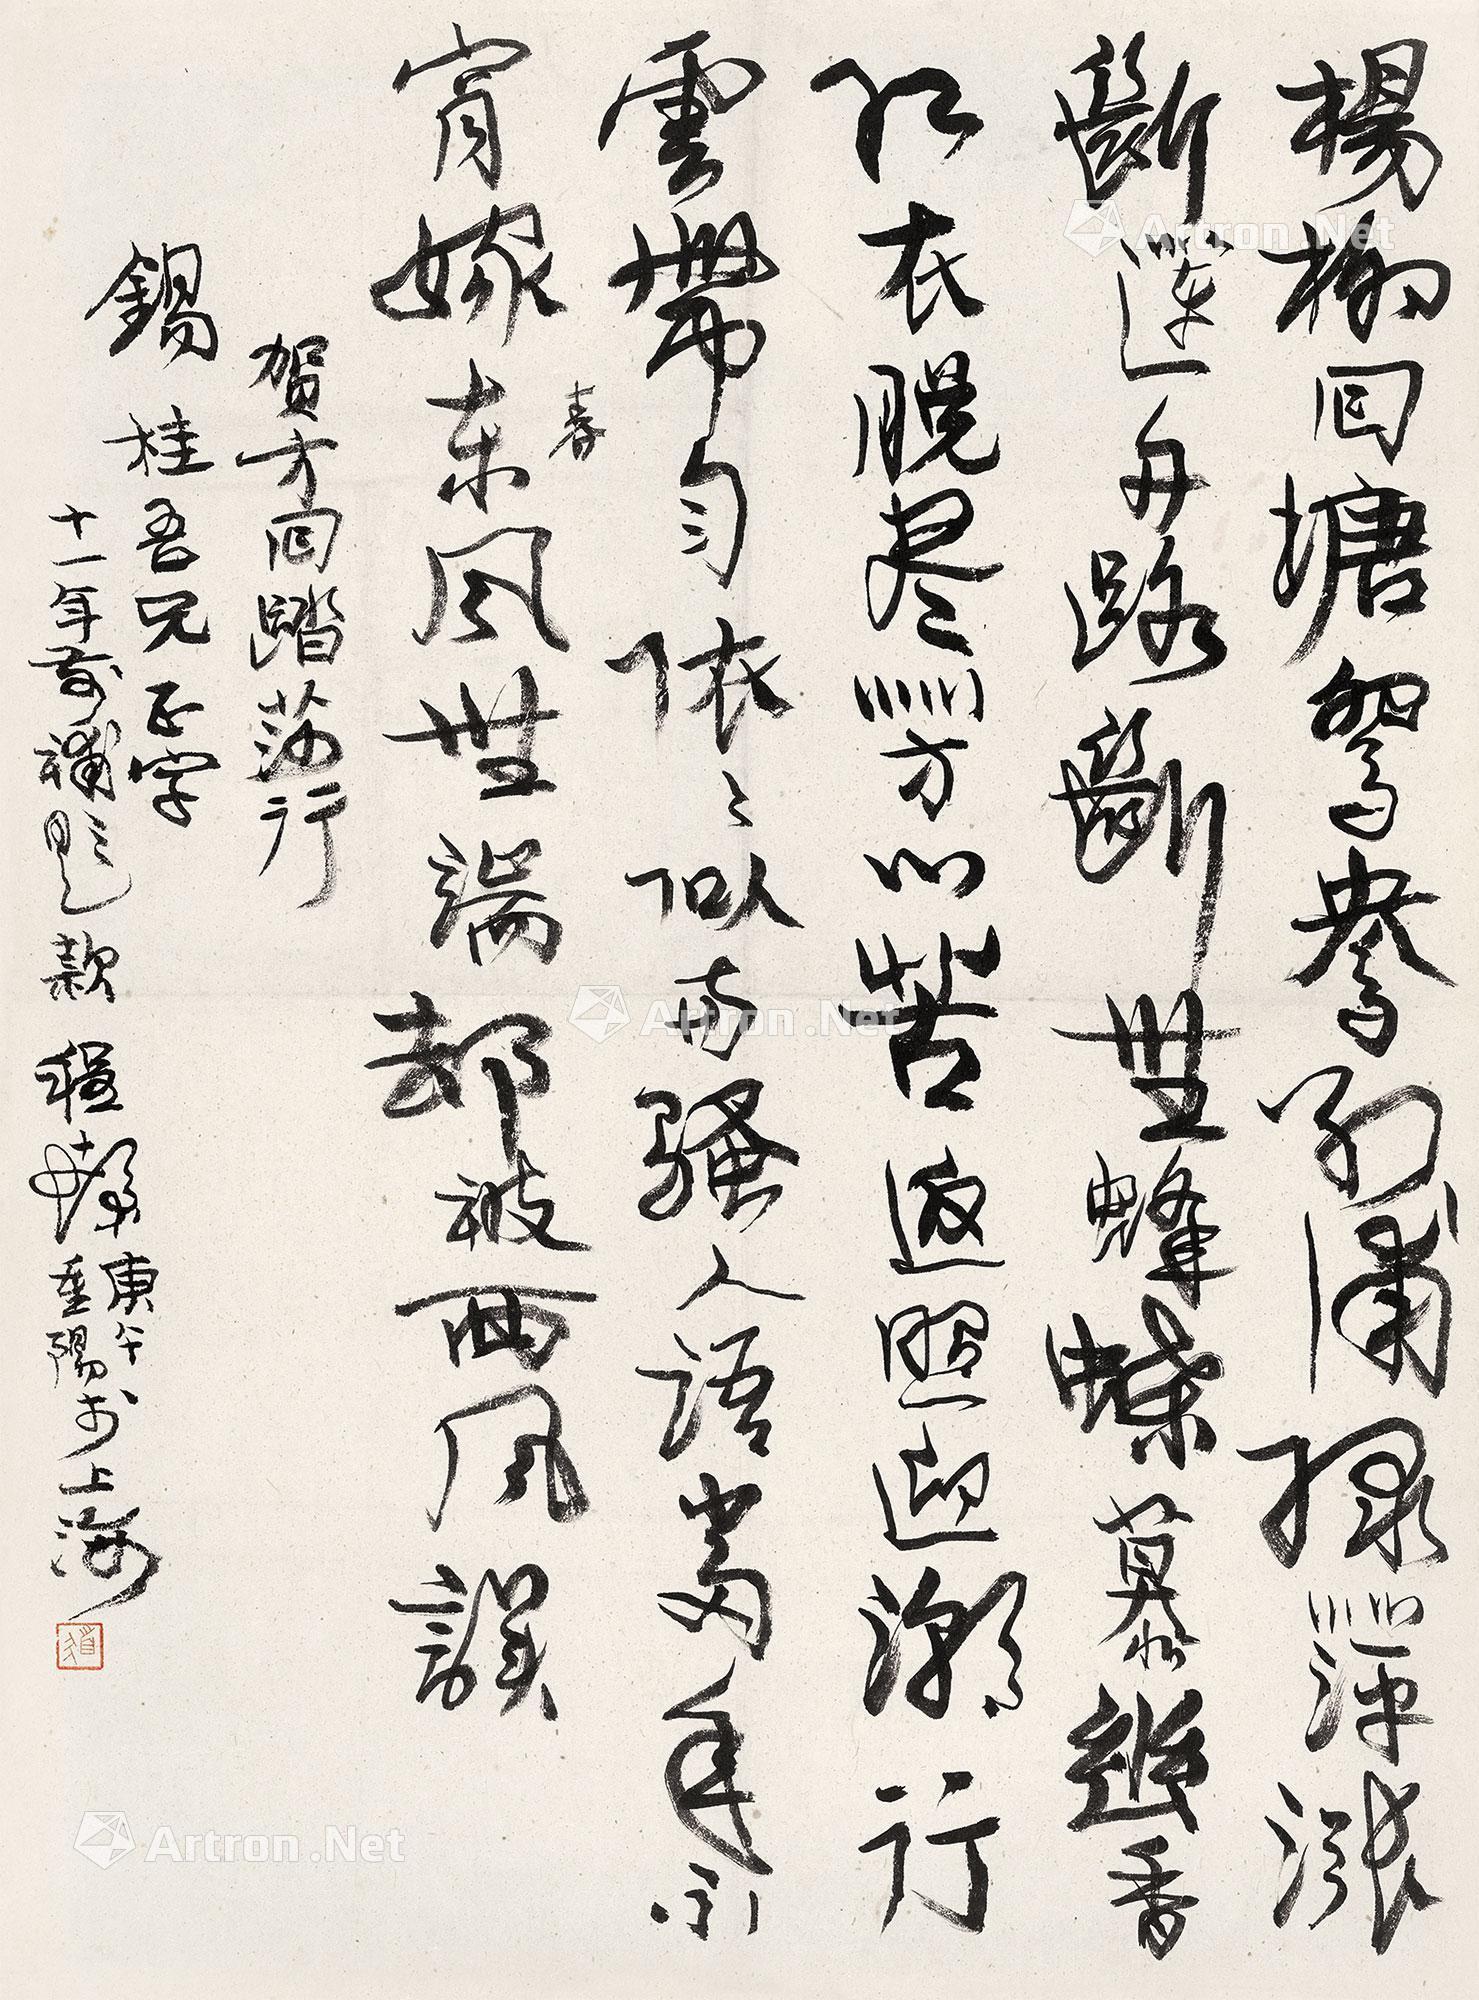 楊柳回塘鴛鴦別浦綠萍漲
斷蓮舟路斷無蜂蝶慕幽香
紅衣脫盡芳心苦返照迎潮行
雲帶雨依依似與騷人語當年不
肯嫁東風無端却被西風誤
春
賀方回踏莎行
錫桂吾兄正字
十一年前補題款 程十髮 庚午
重陽於上海
Artron.Net
Artron.Net
Artron.Net